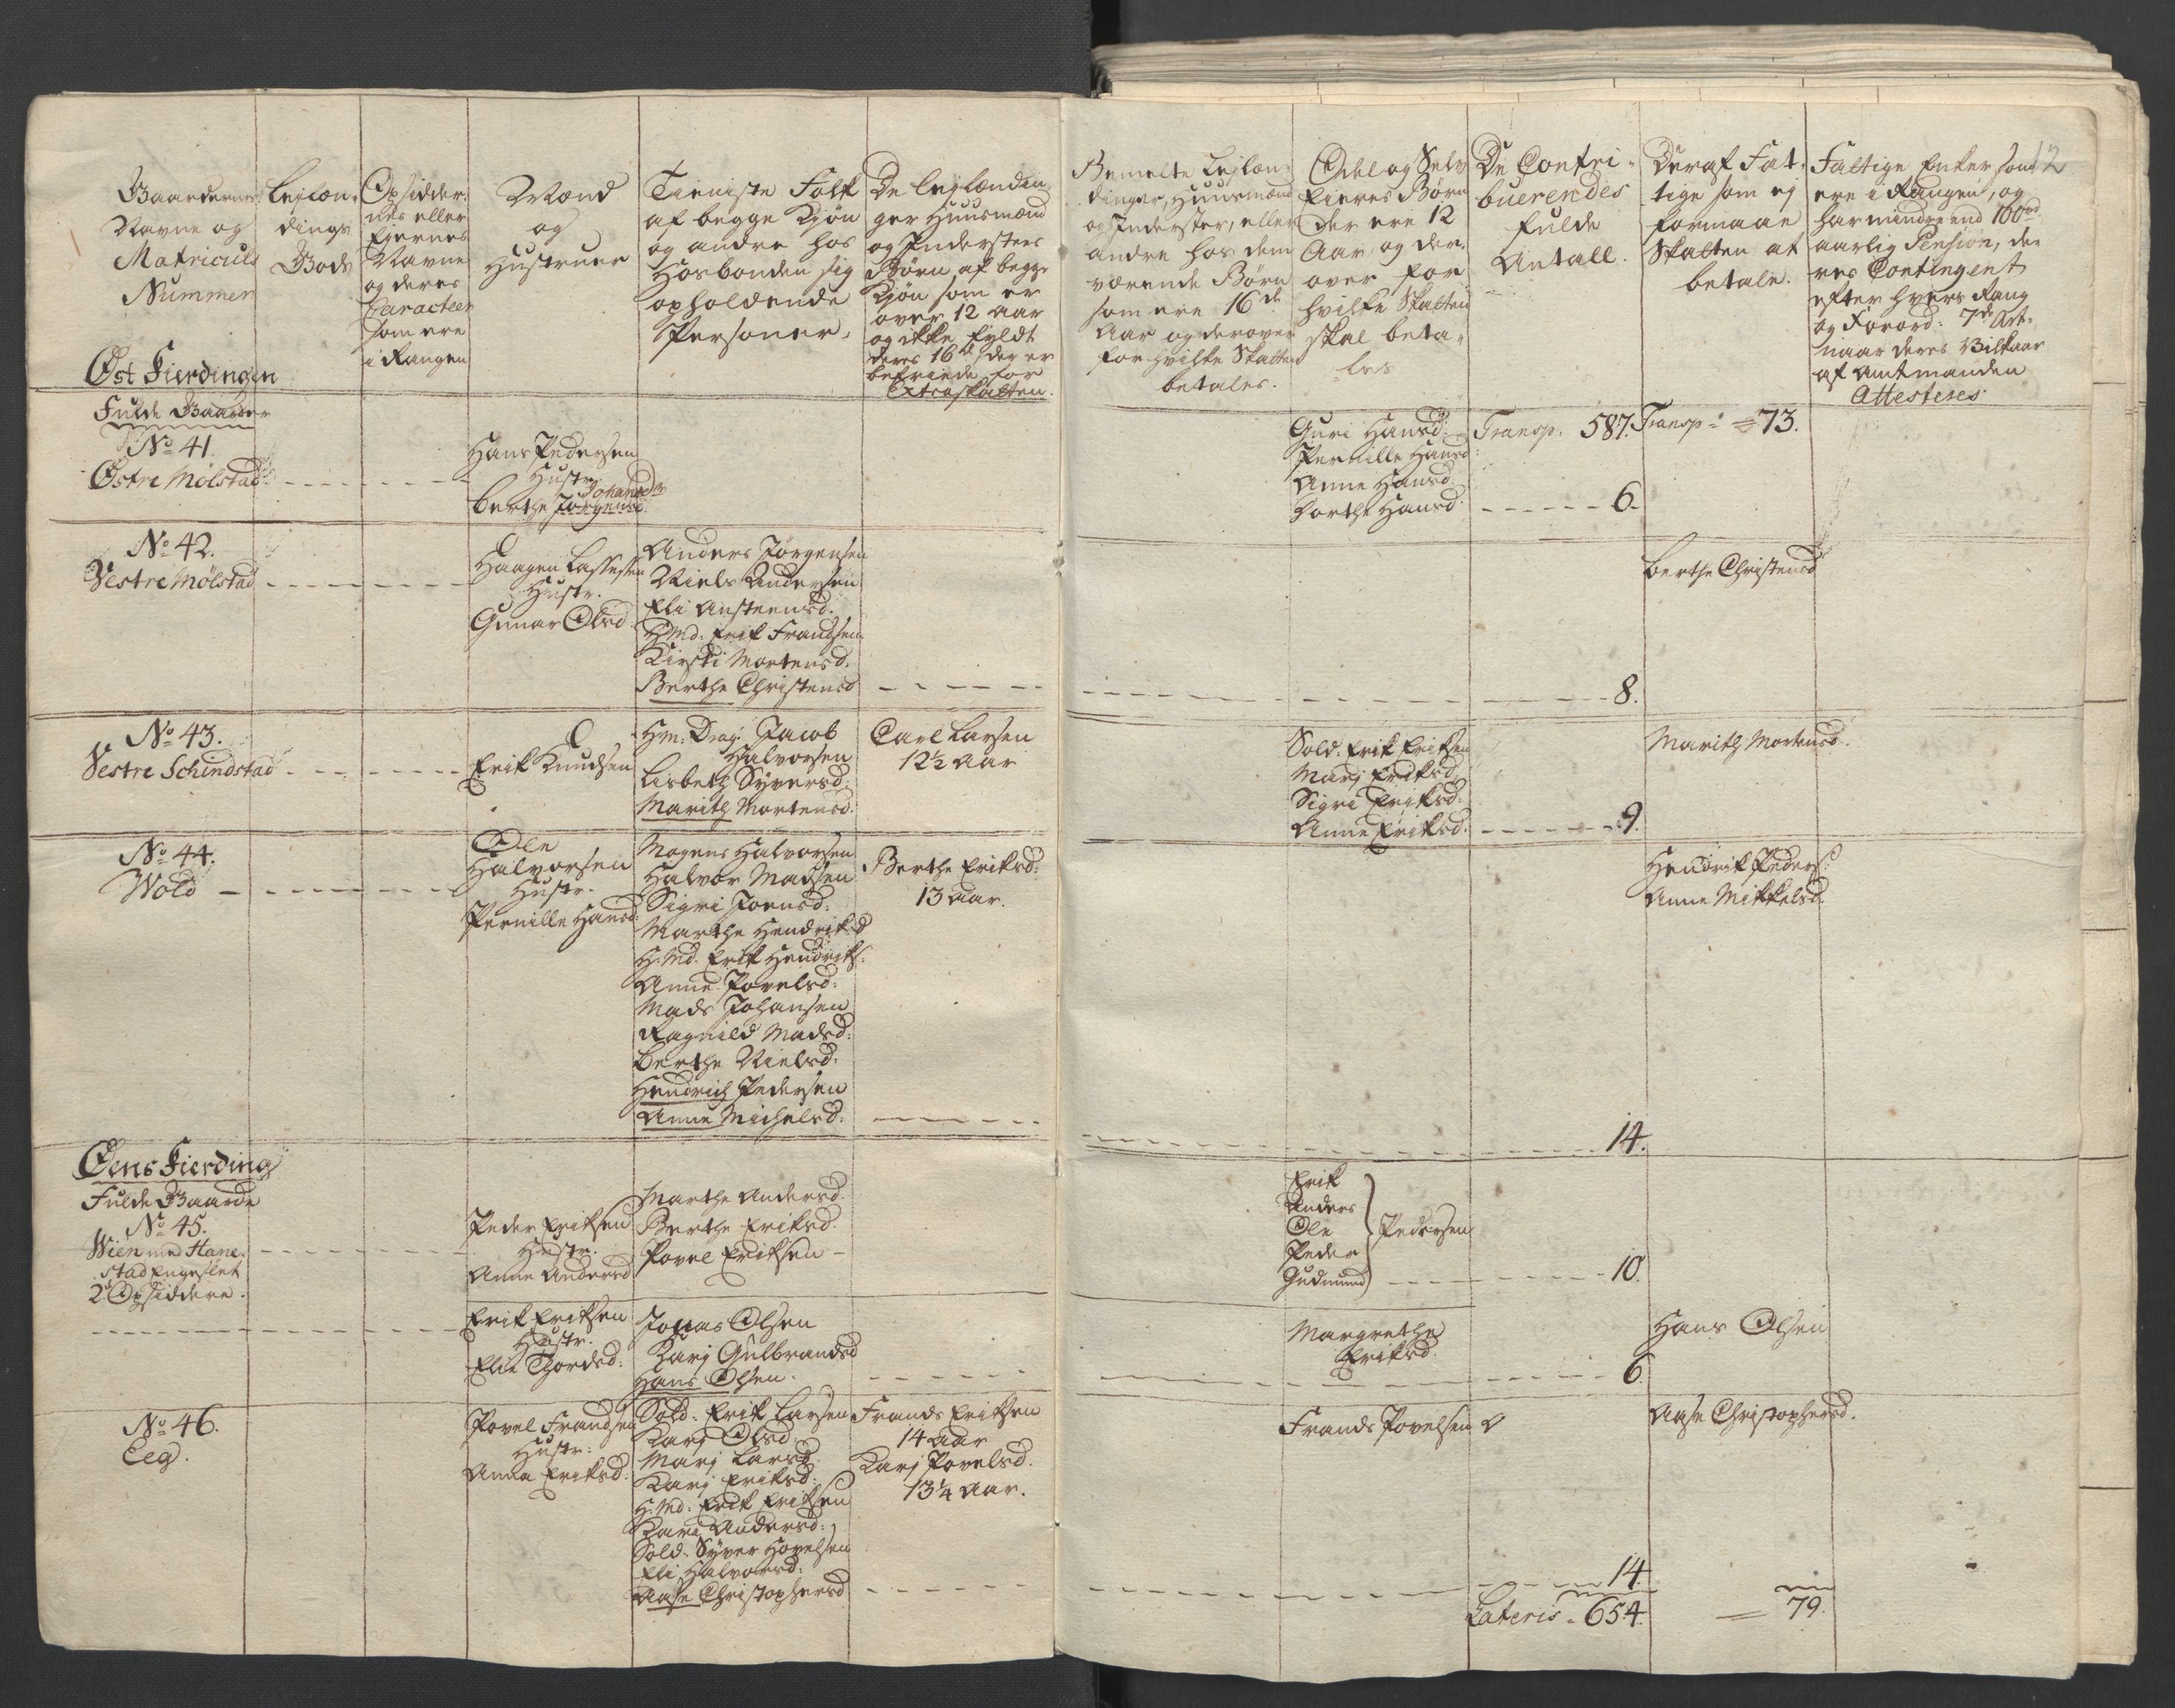 12
Gaardernes
Navne og
Matriculs
Nummer
Leylæn-
dings
Bods
Opsidder-
nes eller
Eiernes
Navne
og deres
Caracteer
som ere
i Rangen
Mænd
og
Hustruer
Tieniste Folk
af begge Kjøn
og andre hos
Hosbonden sig
opholdende
Personer.
De leylændin-
ger Huusmænd
og Inderstes
Børn af begge
Kjøn som er
over 12 Aar
og ikke fyldt
deres 16de der er
befriede for
Extraskatten.
Bemelte Leylæn-
dinger, Huusmænd
og Inderster, eller
andre hos dem
værende Børn
som ere 16de
Aar og derover
for hvilke Skatten
betales.
Odel og Selv
Eieres Børn
der ere 12
Aar og der-
over for
hvilke Skatten
skal beta-
les
De Contri-
buerendes
fulde
Antall.
Deraf Fat-
tige som ej
formaae
Skatten at
betale.
Fattige Enker som
ere i Rangen, og
har mindre end 100rd
aarlig Pension, de-
res Contingent
efter hvers Rang
og Forord: 7de Art.
naar deres Vilkaar
af Amtmanden
Attesteres
Øst Fierdingen
Fulde Gaarder
No 41.
Østre Mølstad
Hans Pedersen
Hustr.
Johansdr
Berthe Jørgensd.
Guri Hansd:
Pernille Hansd:
Anne Hansd.
Dorthe Hansd.
Transp. 587.
6.
Transp: = 73.
No 42.
Vestre Mølstad
Haagen Lassesen
Hustr.
Gunar Olsd.
Anders Jørgensen
Niels Andersen
Eli Austeensd.
H.Md. Erik Frandsen
Kirsti Mortensd.
Berthe Christensd
8.
Berthe Christensd
No 43.
Vestre Schindstad
Erik Knudsen
Hm: Drag: Jacob
Halvorsen
Lisbeth Syversd.
Marith Mortensd.
Carl Larsen
12½ Aar
Sold. Erik Eriksen
Marj Eriksd.
Sigri Eriksd.
Anne Eriksd.
9.
Marith Mortensd.
No 44.
Wold
Ole
Halvorsen
Hustr.
Pernille Hansd:
Mogens Halvorsen
Halvor Madsen
Sigri Joensd:
Marthe Hendriksd
H.Md. Erik Hendriks:
Anne Povelsd:
Mads Johansen
Ragnild Madsd:
Berthe Nielsd:
Hendrich Pedersen
Anne Michelsd:
Berthe Eriksd:
13 Aar.
14.
Hendrik Peders:
Anne Mikkelsd.
Øens Fierding
Fulde Gaarde
No 45.
Wien med Hane-
stad Engeslet
2de Opsiddere.
Peder Eriksen
Hustr.
Anne Andersd
Marthe Andersd.
Berthe Eriksd.
Povel Eriksen
Erik
Anders
Ole
Peder
Gudmund
Pedersen
10.
Erik Eriksen
Hustr.
Elie Thordsd:
Jonas Olsen
Karj Gulbrandsd
Hans Olsen.
Margrethe
Eriksd.
6.
Hans Olsen
No 46.
Eeg.
Povel Frandsen
Hustr:
Anna Eriksd:
Sold: Erik Larsen
Karj Olsd.
Marj Larsd.
Karj Eriksd:
H.Md: Erik Eriksen
Kari Andersd:
Sold. Syver Hovelsen
Eli Halvorsd:
Aase Christophersd.
Frands Eriksen
14 Aar
Karj Povelsd.
13¼ Aar.
Frands Povelsen
14.
Aase Christophersd.
Lateris. 654.
= 79.